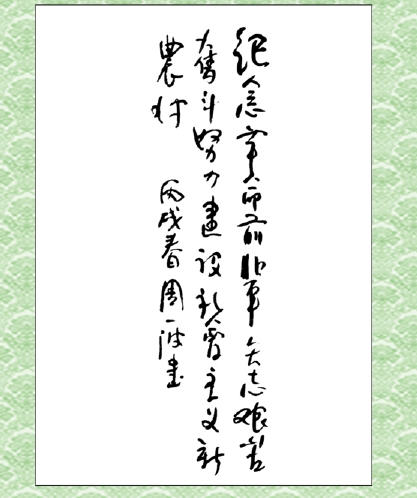 紀念革命前輩矢志艰苦
奮斗努力建设社會主义新
農村 丙戌春周一波書